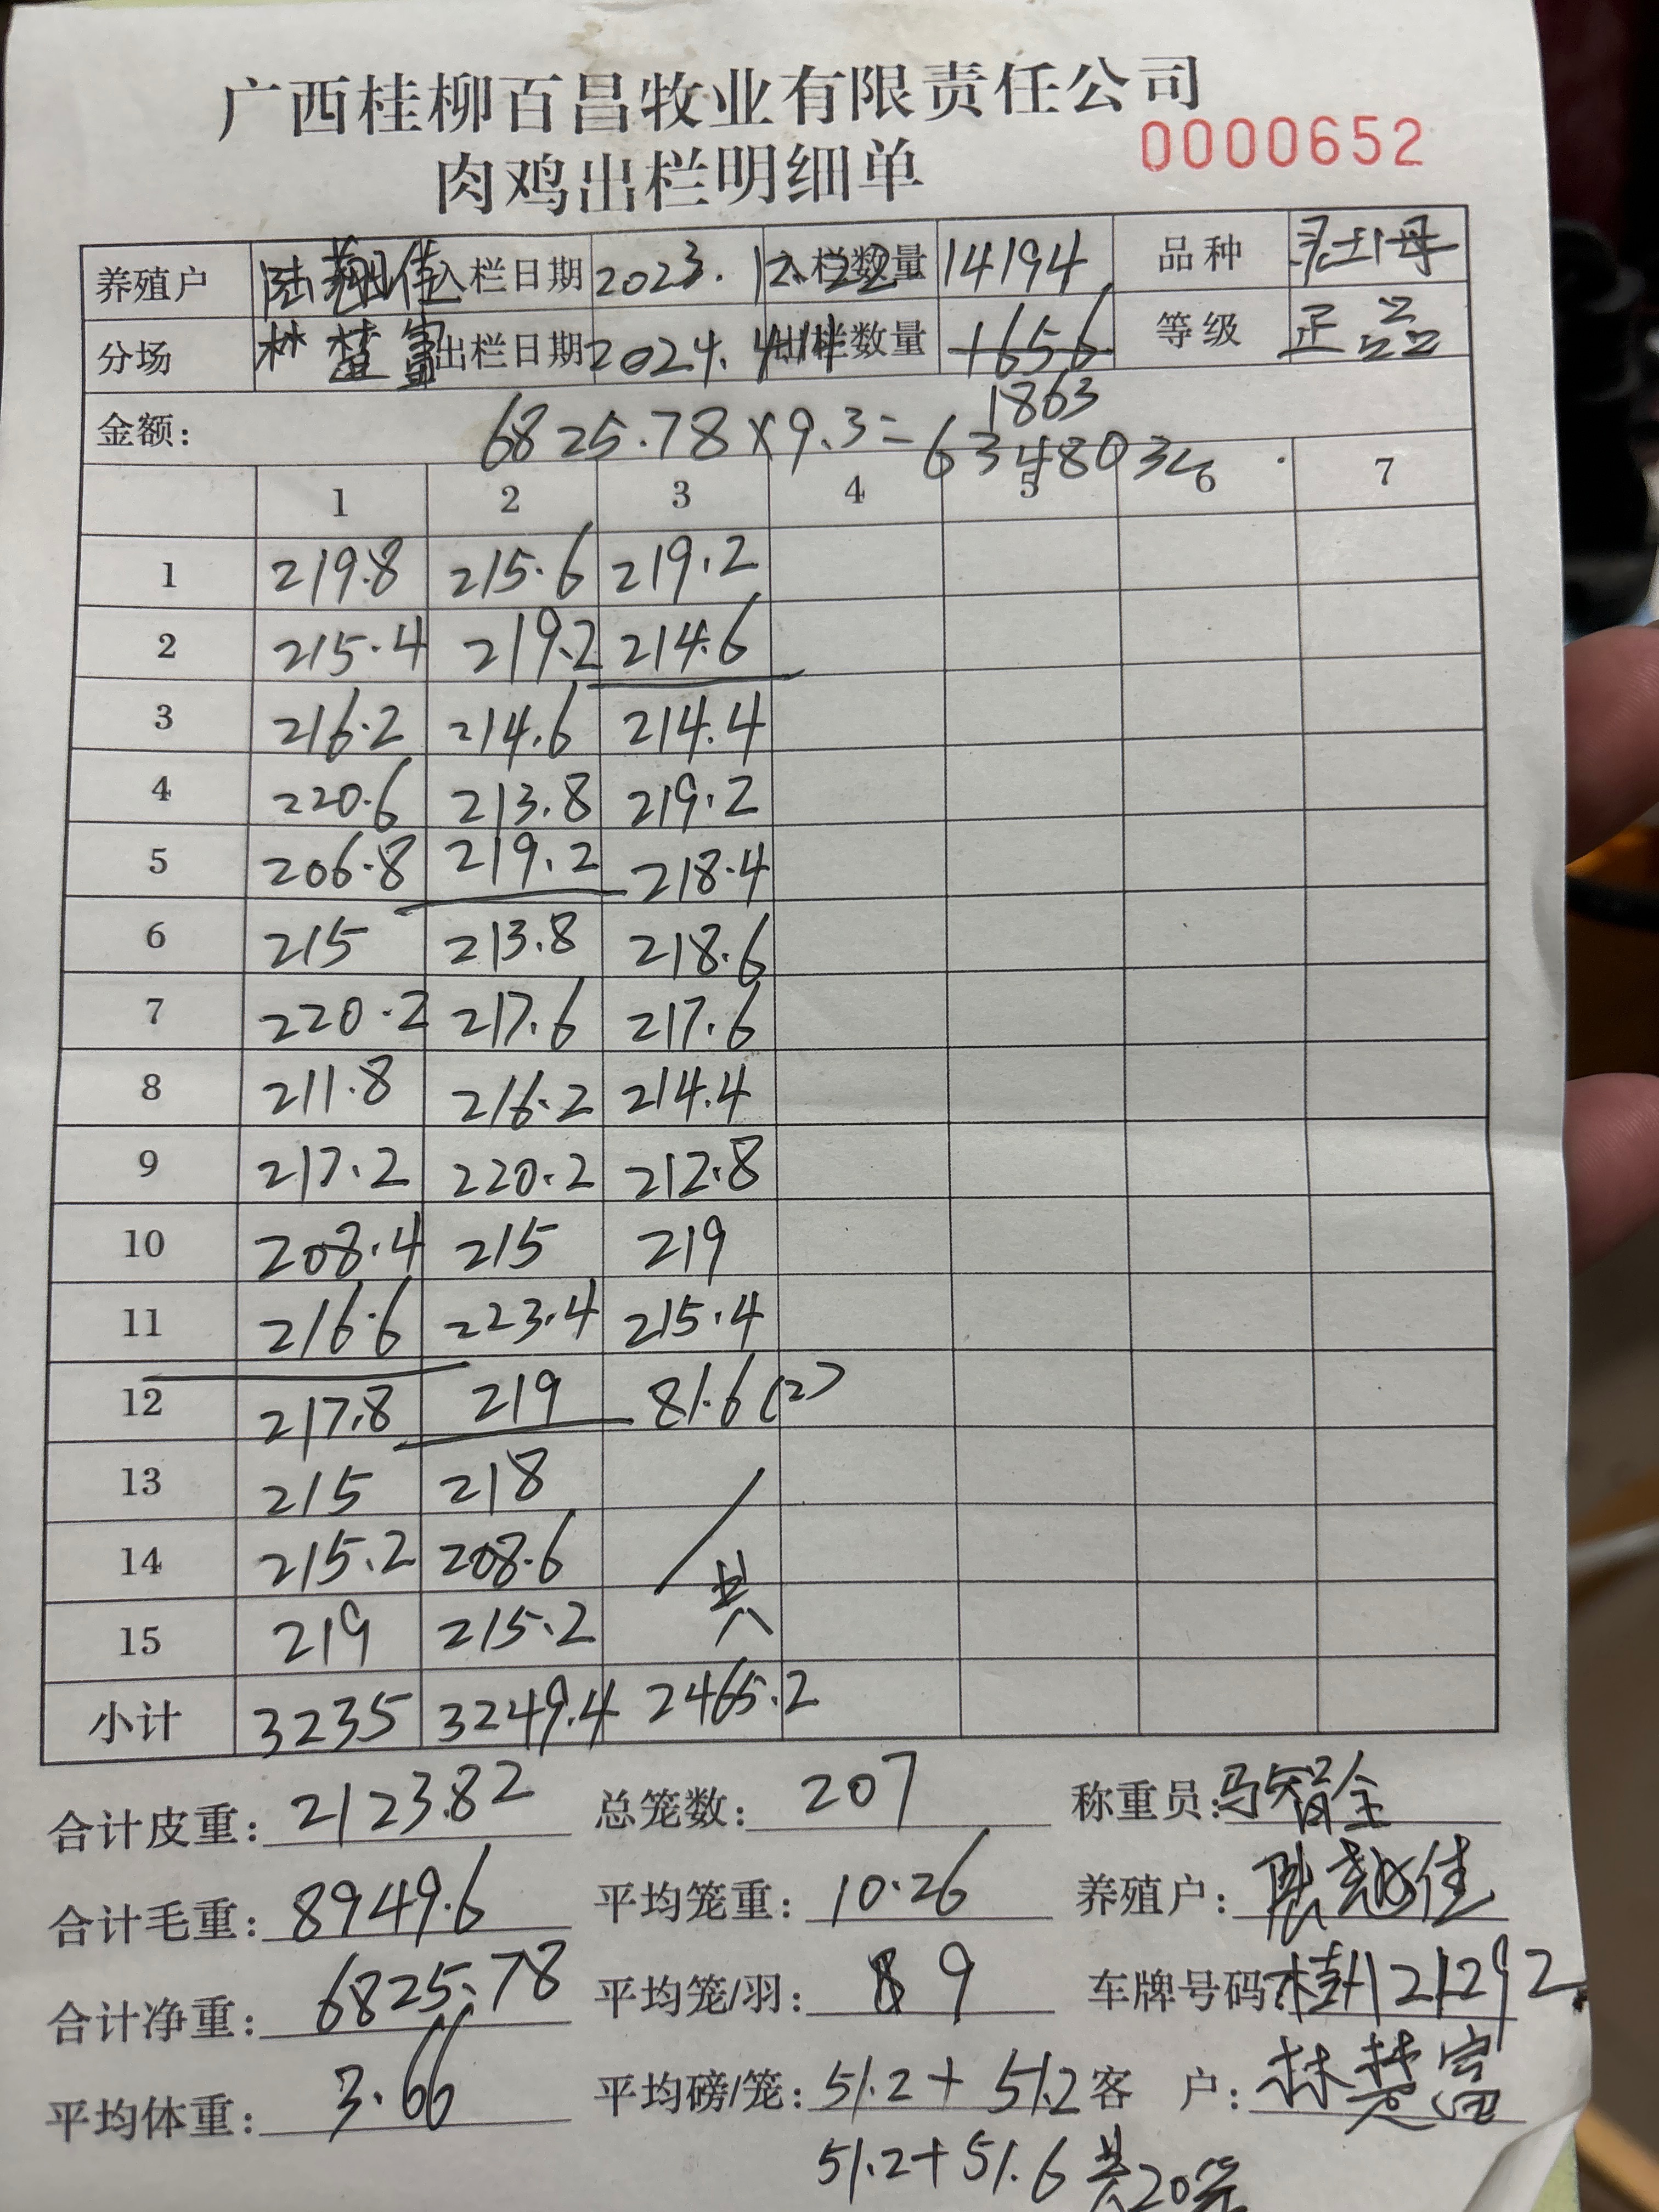 广西桂柳百昌牧业有限责任公司
肉鸡出栏明细单 0000652
养殖户 陆翻佳 入栏日期 2023.12.22 入栏数量 14194 品种 母
分场 林楚富 出栏日期 2024.4.14 出栏数量 1656 等级 正品
1863
金额: 6825.78×9.3=63480元
1 2 3 4 5 6 7
1 219.8 215.6 219.2
2 215.4 219.2 214.6
3 216.2 214.6 214.4
4 220.6 213.8 219.2
5 206.8 219.2 218.4
6 215 213.8 218.6
7 220.2 217.6 217.6
8 211.8 216.2 214.4
9 217.2 220.2 212.8
10 208.4 215 219
11 216.6 223.4 215.4
12 217.8 219 81.6(2)
13 215 218
14 215.2 208.6 共
15 219 215.2
小计 3235 3249.4 2465.2
合计皮重: 2123.82 总笼数: 207 称重员: 马智全
合计毛重: 8949.6 平均笼重: 10.26 养殖户: 佳
合计净重: 6825.78 平均笼/羽: 9 车牌号码: 桂H21292
平均体重: 3.66 平均磅/笼: 51.2+51.2 客 户: 林楚富
51.2+51.6 共20笼